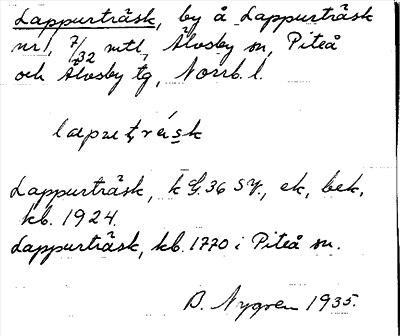 Lappurträsk, by å Lappurträsk
nr 1, 7/32 mtl, Älvsby sn, Piteå
och Älvsby tg, Norrb. l.
Lappurträsk, k G. 36 SV., ek., bek.
kb. 1924.
Lappurträsk, kb. 1770 i Piteå sn.
B. Nygren 1935.